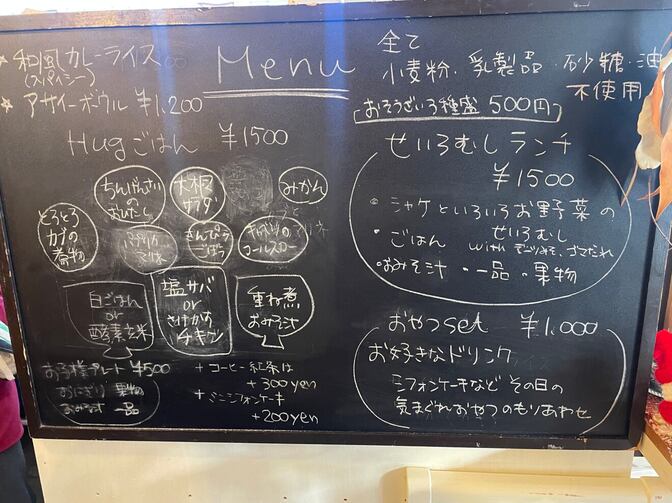 Menu
和風カレーライス
(スパイシー)
アサイーボウル ¥1,200
全て
小麦粉・乳製品・砂糖・油
不使用
おそうざい3種盛 500円
Hugごはん ¥1500
ちんげんさい
の
おひたし
大根
サラダ
みかん
とろとろ
カブの
煮物
きんぴら
ごぼう
コールスロー
白ごはん
or
酵素玄米
塩サバ
or
チキン
重ね煮
おみそ汁
お子様プレート ¥500
おにぎり 果物
おみそ汁 一品
+ コーヒー紅茶は
+300yen
+ ミニシフォンケーキ
+200yen
せいろむしランチ
¥1500
・シャケといろいろお野菜の
せいろむし
・ごはん with
・おみそ汁・一品・果物
おやつset ¥1,000
お好きなドリンク
シフォンケーキなど その日の
気まぐれおやつのもりあわせ